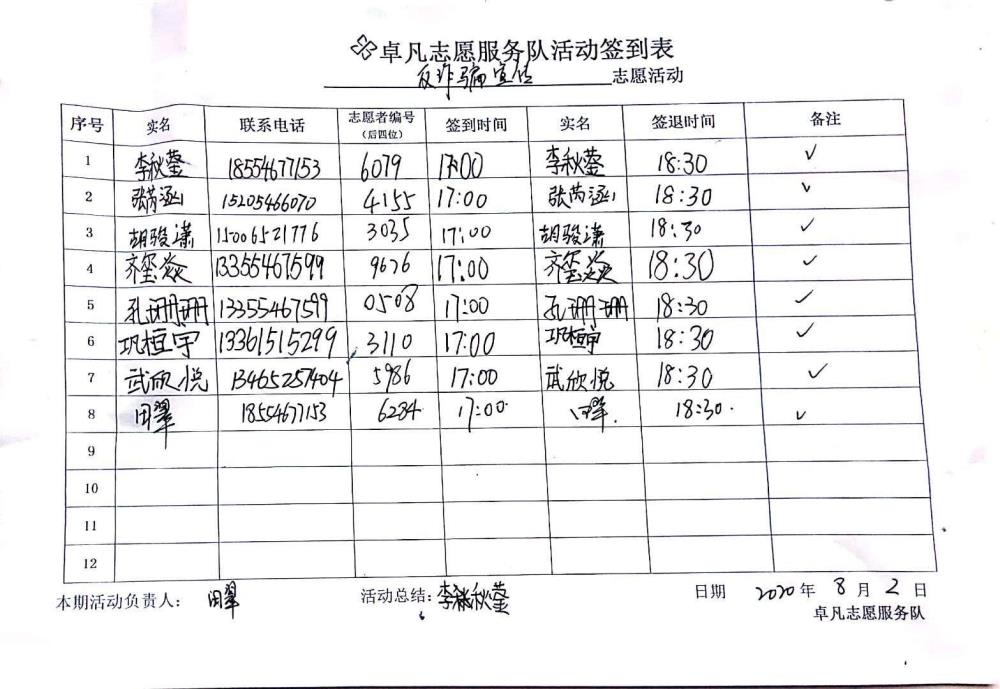 卓凡志愿服务队活动签到表
反诈骗宣传 志愿活动
序号 实名 联系电话 志愿者编号（后四位） 签到时间 实名 签退时间 备注
1 李秋蓥 18554677153 6079 17:00 李秋蓥 18:30 ✓
2 张芮涵 15205466070 4155 17:00 张芮涵 18:30 ✓
3 胡骏潇 15006521776 3035 17:00 胡骏潇 18:30 ✓
4 齐玺焱 13355467599 9676 17:00 齐玺焱 18:30 ✓
5 孔珊珊 13355467599 0508 17:00 孔珊珊 18:30 ✓
6 巩桓宇 13361515299 3110 17:00 巩桓宇 18:30 ✓
7 武欣悦 13465257404 5986 17:00 武欣悦 18:30 ✓
8 田翠 18554677153 6284 17:00 田翠 18:30 ✓
9
10
11
12
本期活动负责人： 田翠 活动总结: 李秋蓥 日期 2020 年 8 月 2 日
卓凡志愿服务队